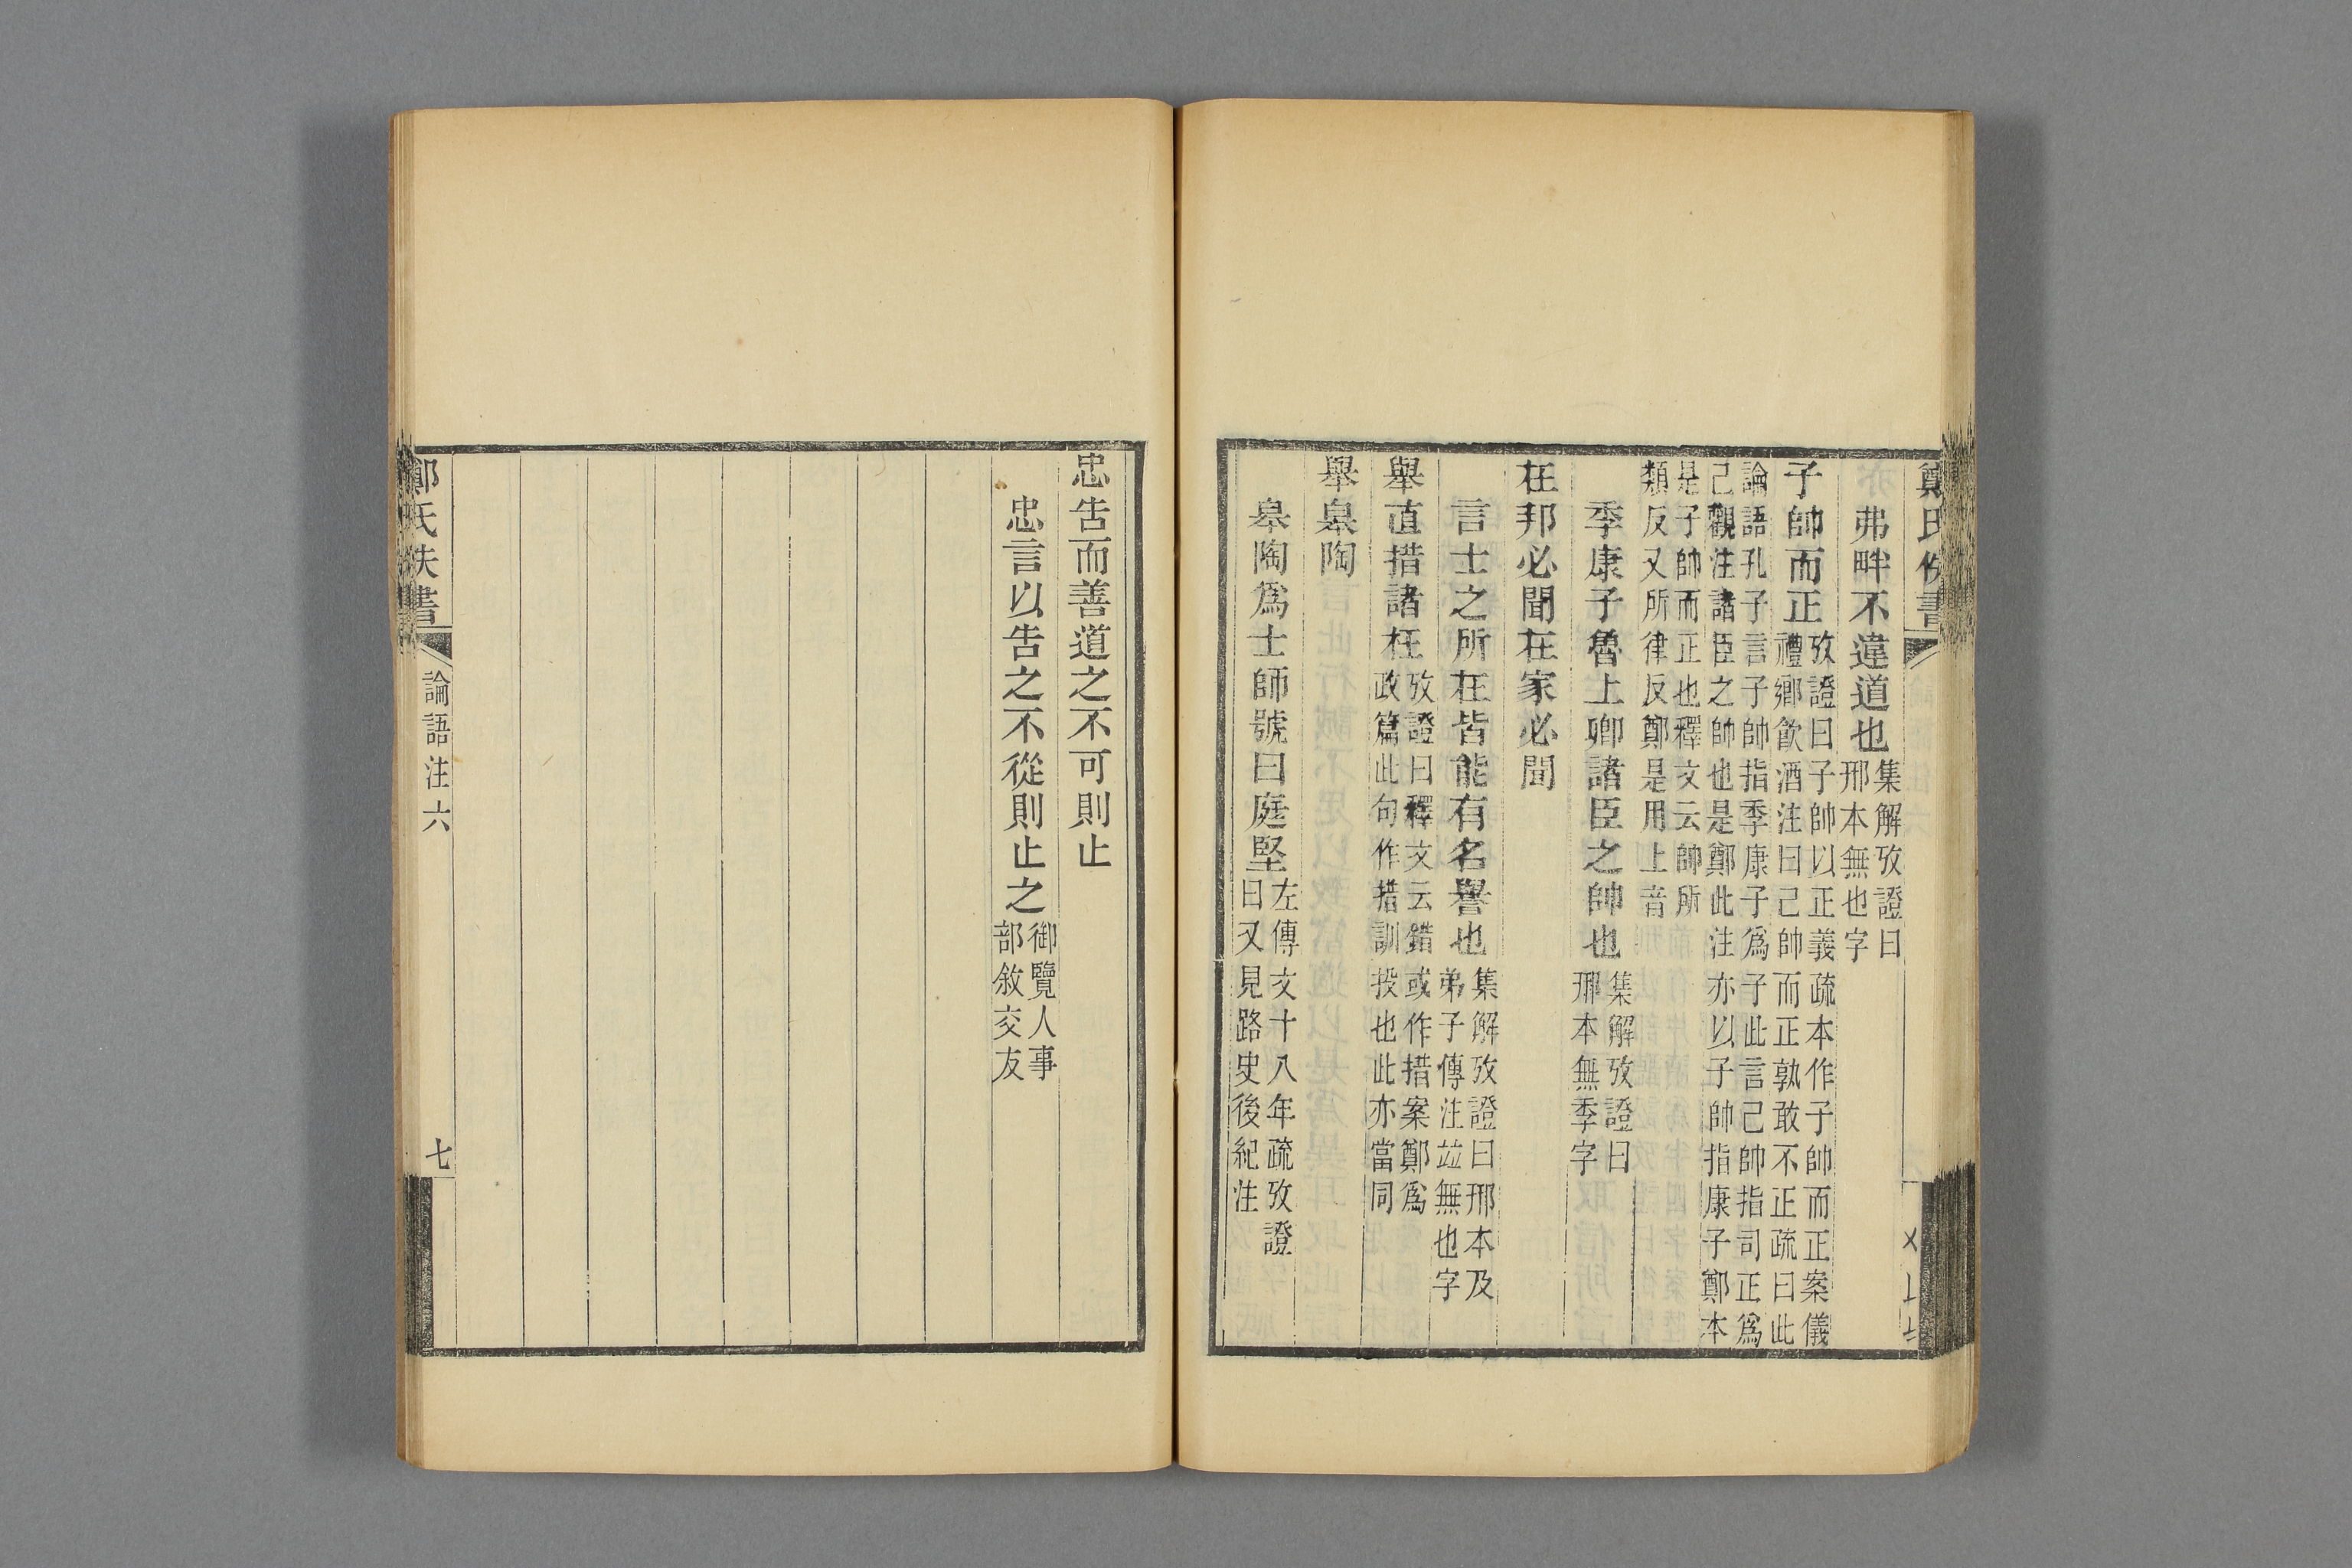 鄭氏佚書
弗畔不違道也集解攷證曰邢本無也字
子帥而正攷證曰子帥以正義疏本作子帥而正案儀禮鄉飲酒注曰己帥而正孰敢不正疏曰此
論語孔子言子帥指季康子爲子此言己帥指司正爲己觀注諸臣之帥也是鄭此注亦以子帥指康子鄭本
是子帥而正也釋文云帥所類反又所律反鄭是用上音
季康子魯上卿諸臣之帥也集解攷證曰邢本無季字
在邦必聞在家必聞
言士之所在皆能有名譽也集解攷證曰邢本及弟子傳注竝無也字
舉直措諸枉攷證曰釋文云錯或作措案鄭爲政篇此句作措訓投也此亦當同
舉皋陶
皋陶爲士師號曰庭堅左傳文十八年疏攷證曰又見路史後紀注
忠告而善道之不可則止
忠言以告之不從則止之御覽人事部敘交友
鄭氏佚書
論語注六
七